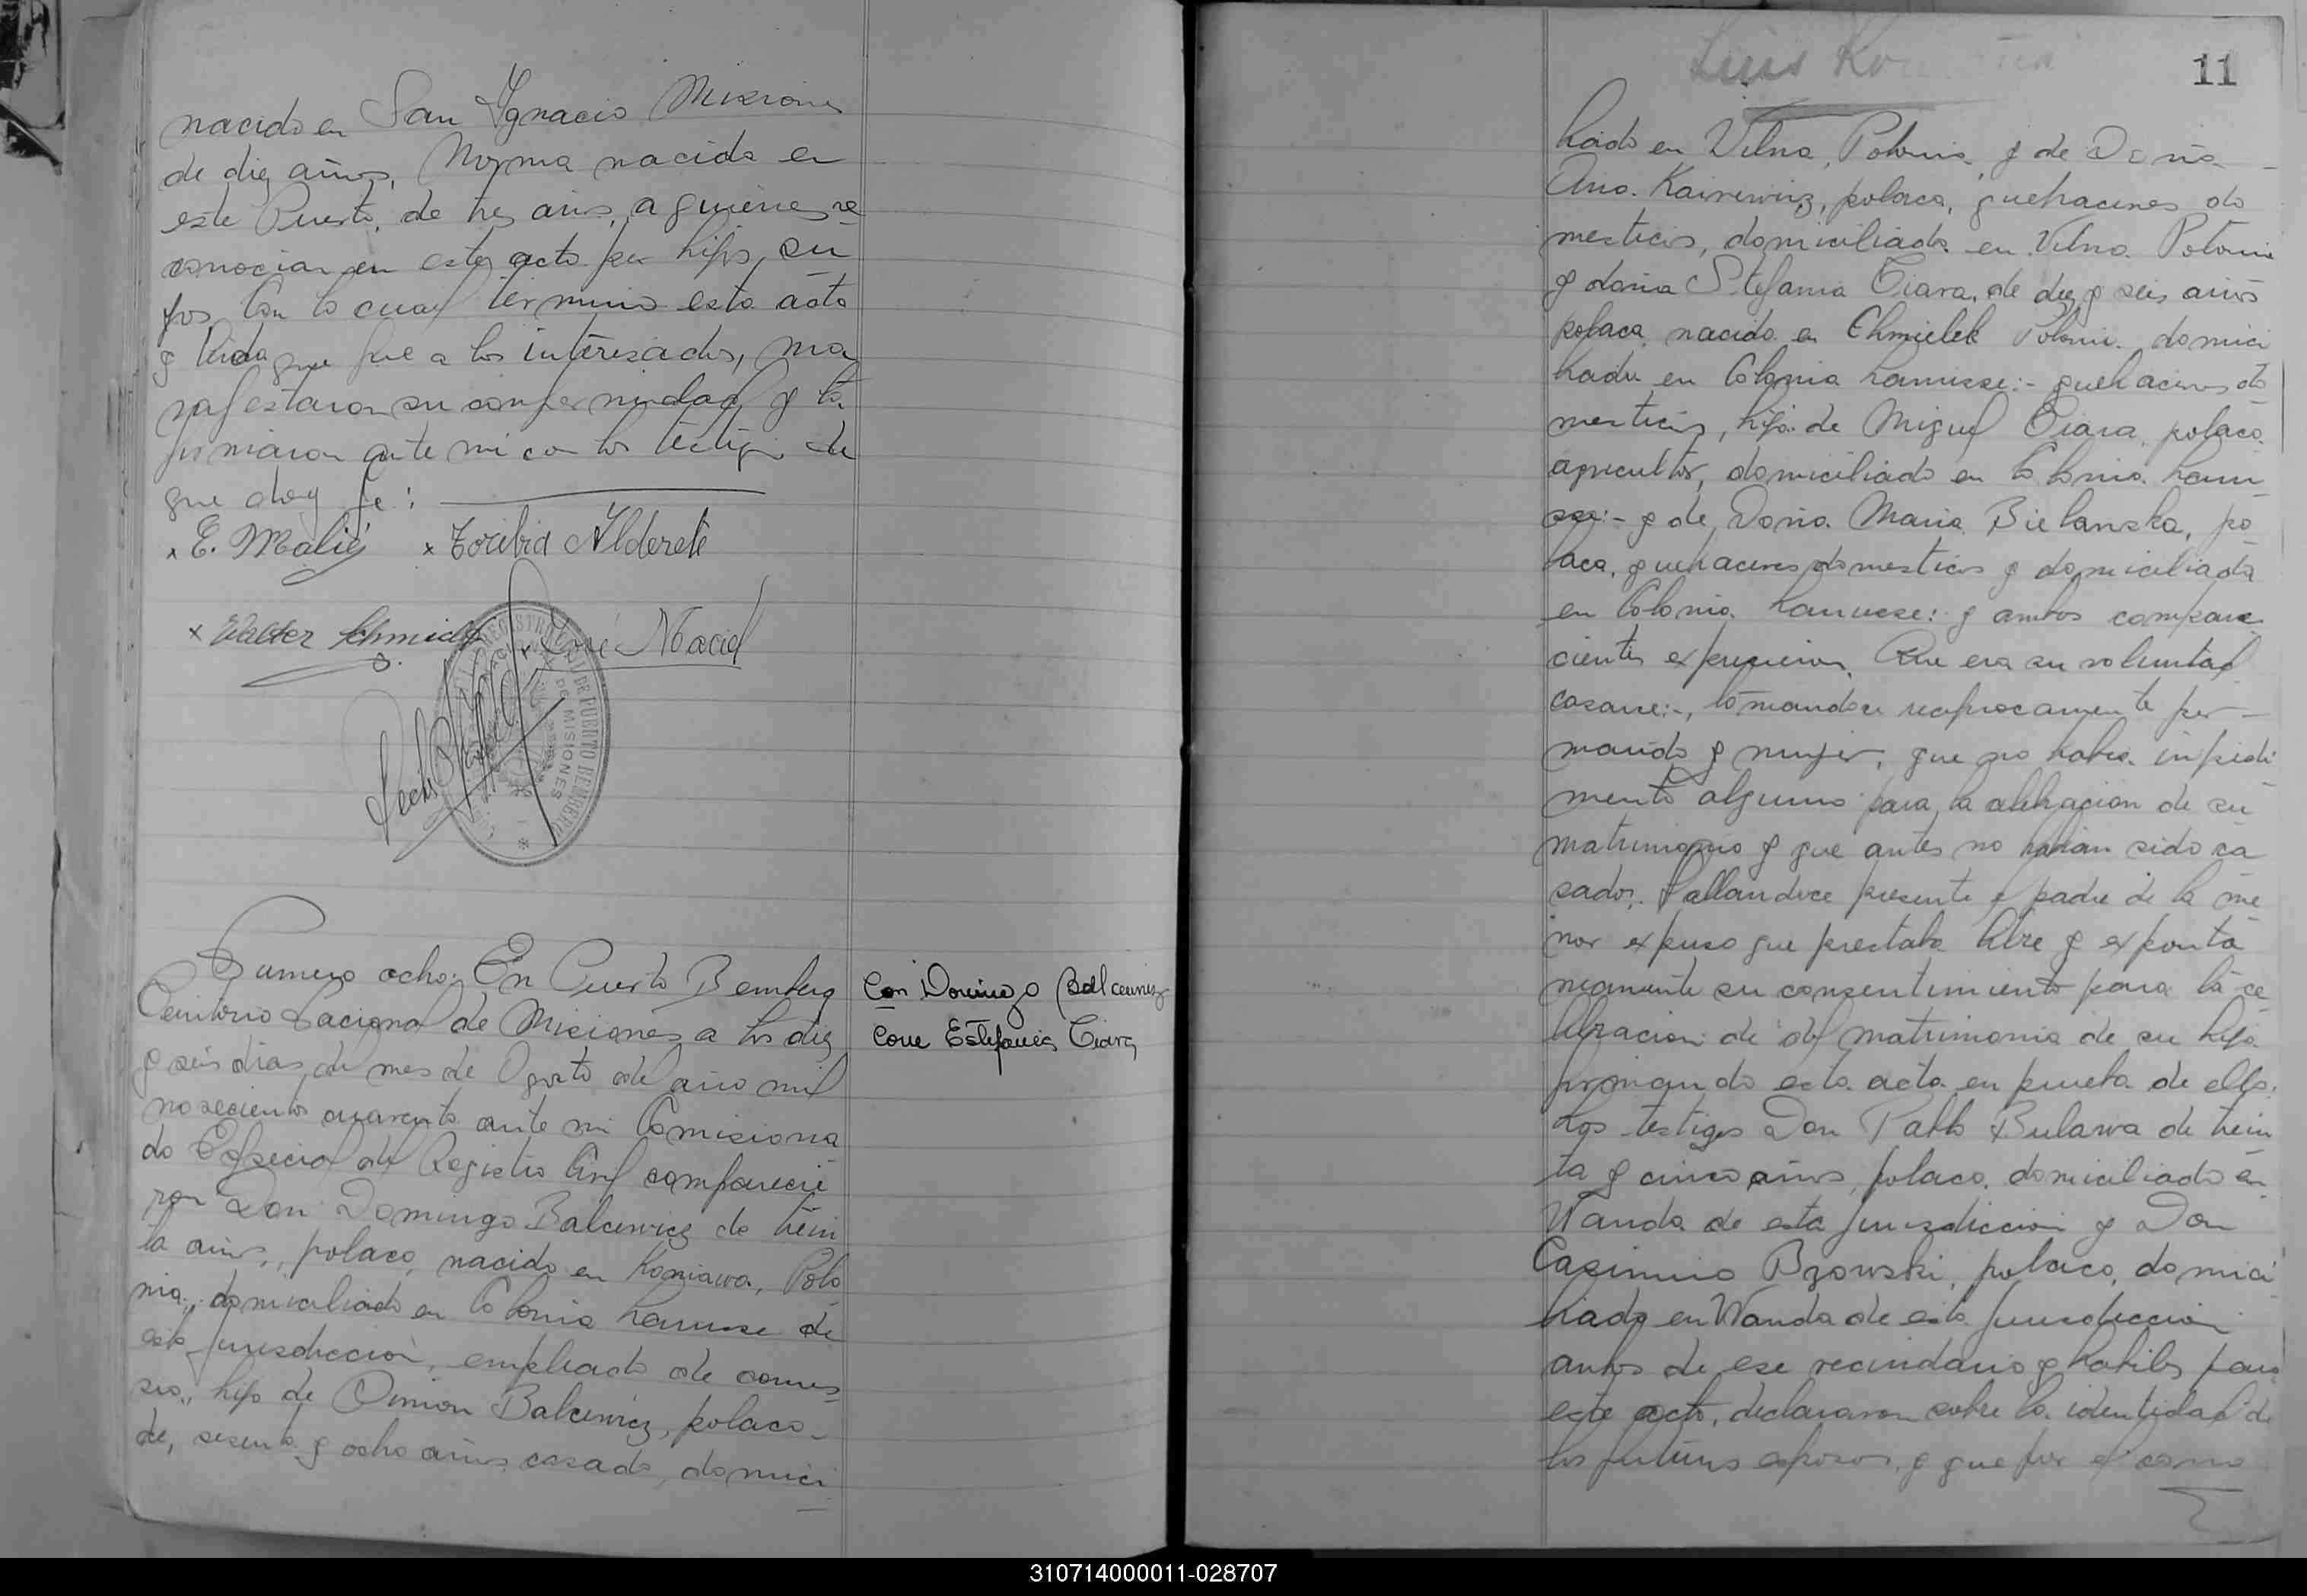 nacido en San Ygnacio Misiones
de diez años, Norma nacida en
este Puerto, de tres años, a quienes re
conocian en este acto por hijos su
yos, Con lo cual termino esta acta
y leida que fue a los interesados, ma
nifestaron su conformidad y la
firmaron ante mi con los testigos de
que doy fe:
x E. Malié x Toribia Alderete
x Walter Schmidt x José Maciel
REGISTRO CIVIL DE PUERTO BEMBERG
DE MISIONES
Numero ocho: En Puerto Bemberg
Territorio Nacional de Misiones a los diez
y seis dias del mes de Agosto del año mil
novecientos cuarenta ante mi Comisiona
do Especial del Registro Civil comparecie
ron Don Domingo Balcewicz de trein
ta años, polaco, nacido en Koniawa, Polo
nia, domiciliado en Colonia Lanusse de
esta jurisdiccion, empleado de comer
cio, hijo de Balcewicz, polaco
de, sesenta y ocho años casado, domici
Con Domingo Balcewicz
con Estefania Ciara
11
Luis
liado en Vilna, Polonia y de Doña
Ana Kairewicz, polaca, quehaceres do
mesticos, domiciliada en Vilna Polonia
y doña Stefania Ciara, de diez y seis años
polaca, nacida en Chmielek Polonia domici
liada en Colonia Lanusse:- quehaceres do
mesticos, hija de Miguel Ciara, polaco
agricultor, domiciliado en Colonia Lanu
sse:- y de Doña Maria Bielanska, po
laca, quehaceres domesticos y domiciliada
en Colonia Lanusse: y ambos compare
cientes expusieron, Que era su voluntad
casarse:-, tomandose reciprocamente por
marido y mujer, que no habia impedi
mento alguno para la celebracion de su
matrimonio y que antes no habian sido ca
sados. Hallandose presente el padre de la me
nor expuso que prestaba libre y exponta
neamente su consentimiento para la ce
lebracion de del matrimonio de su hija
firmando esta acta en prueba de ello.
Los testigos Don Pablo Bulawa de trein
ta y cinco años, polaco, domiciliado en
Wanda de esta jurisdiccion y Don
Casimiro Bzowski, polaco, domici
liado en Wanda de esta jurisdiccion
ambos de ese vecindario y habiles para
este acto, declararon sobre la identidad de
los futuros esposos, y que por el cono
310714000011-028707